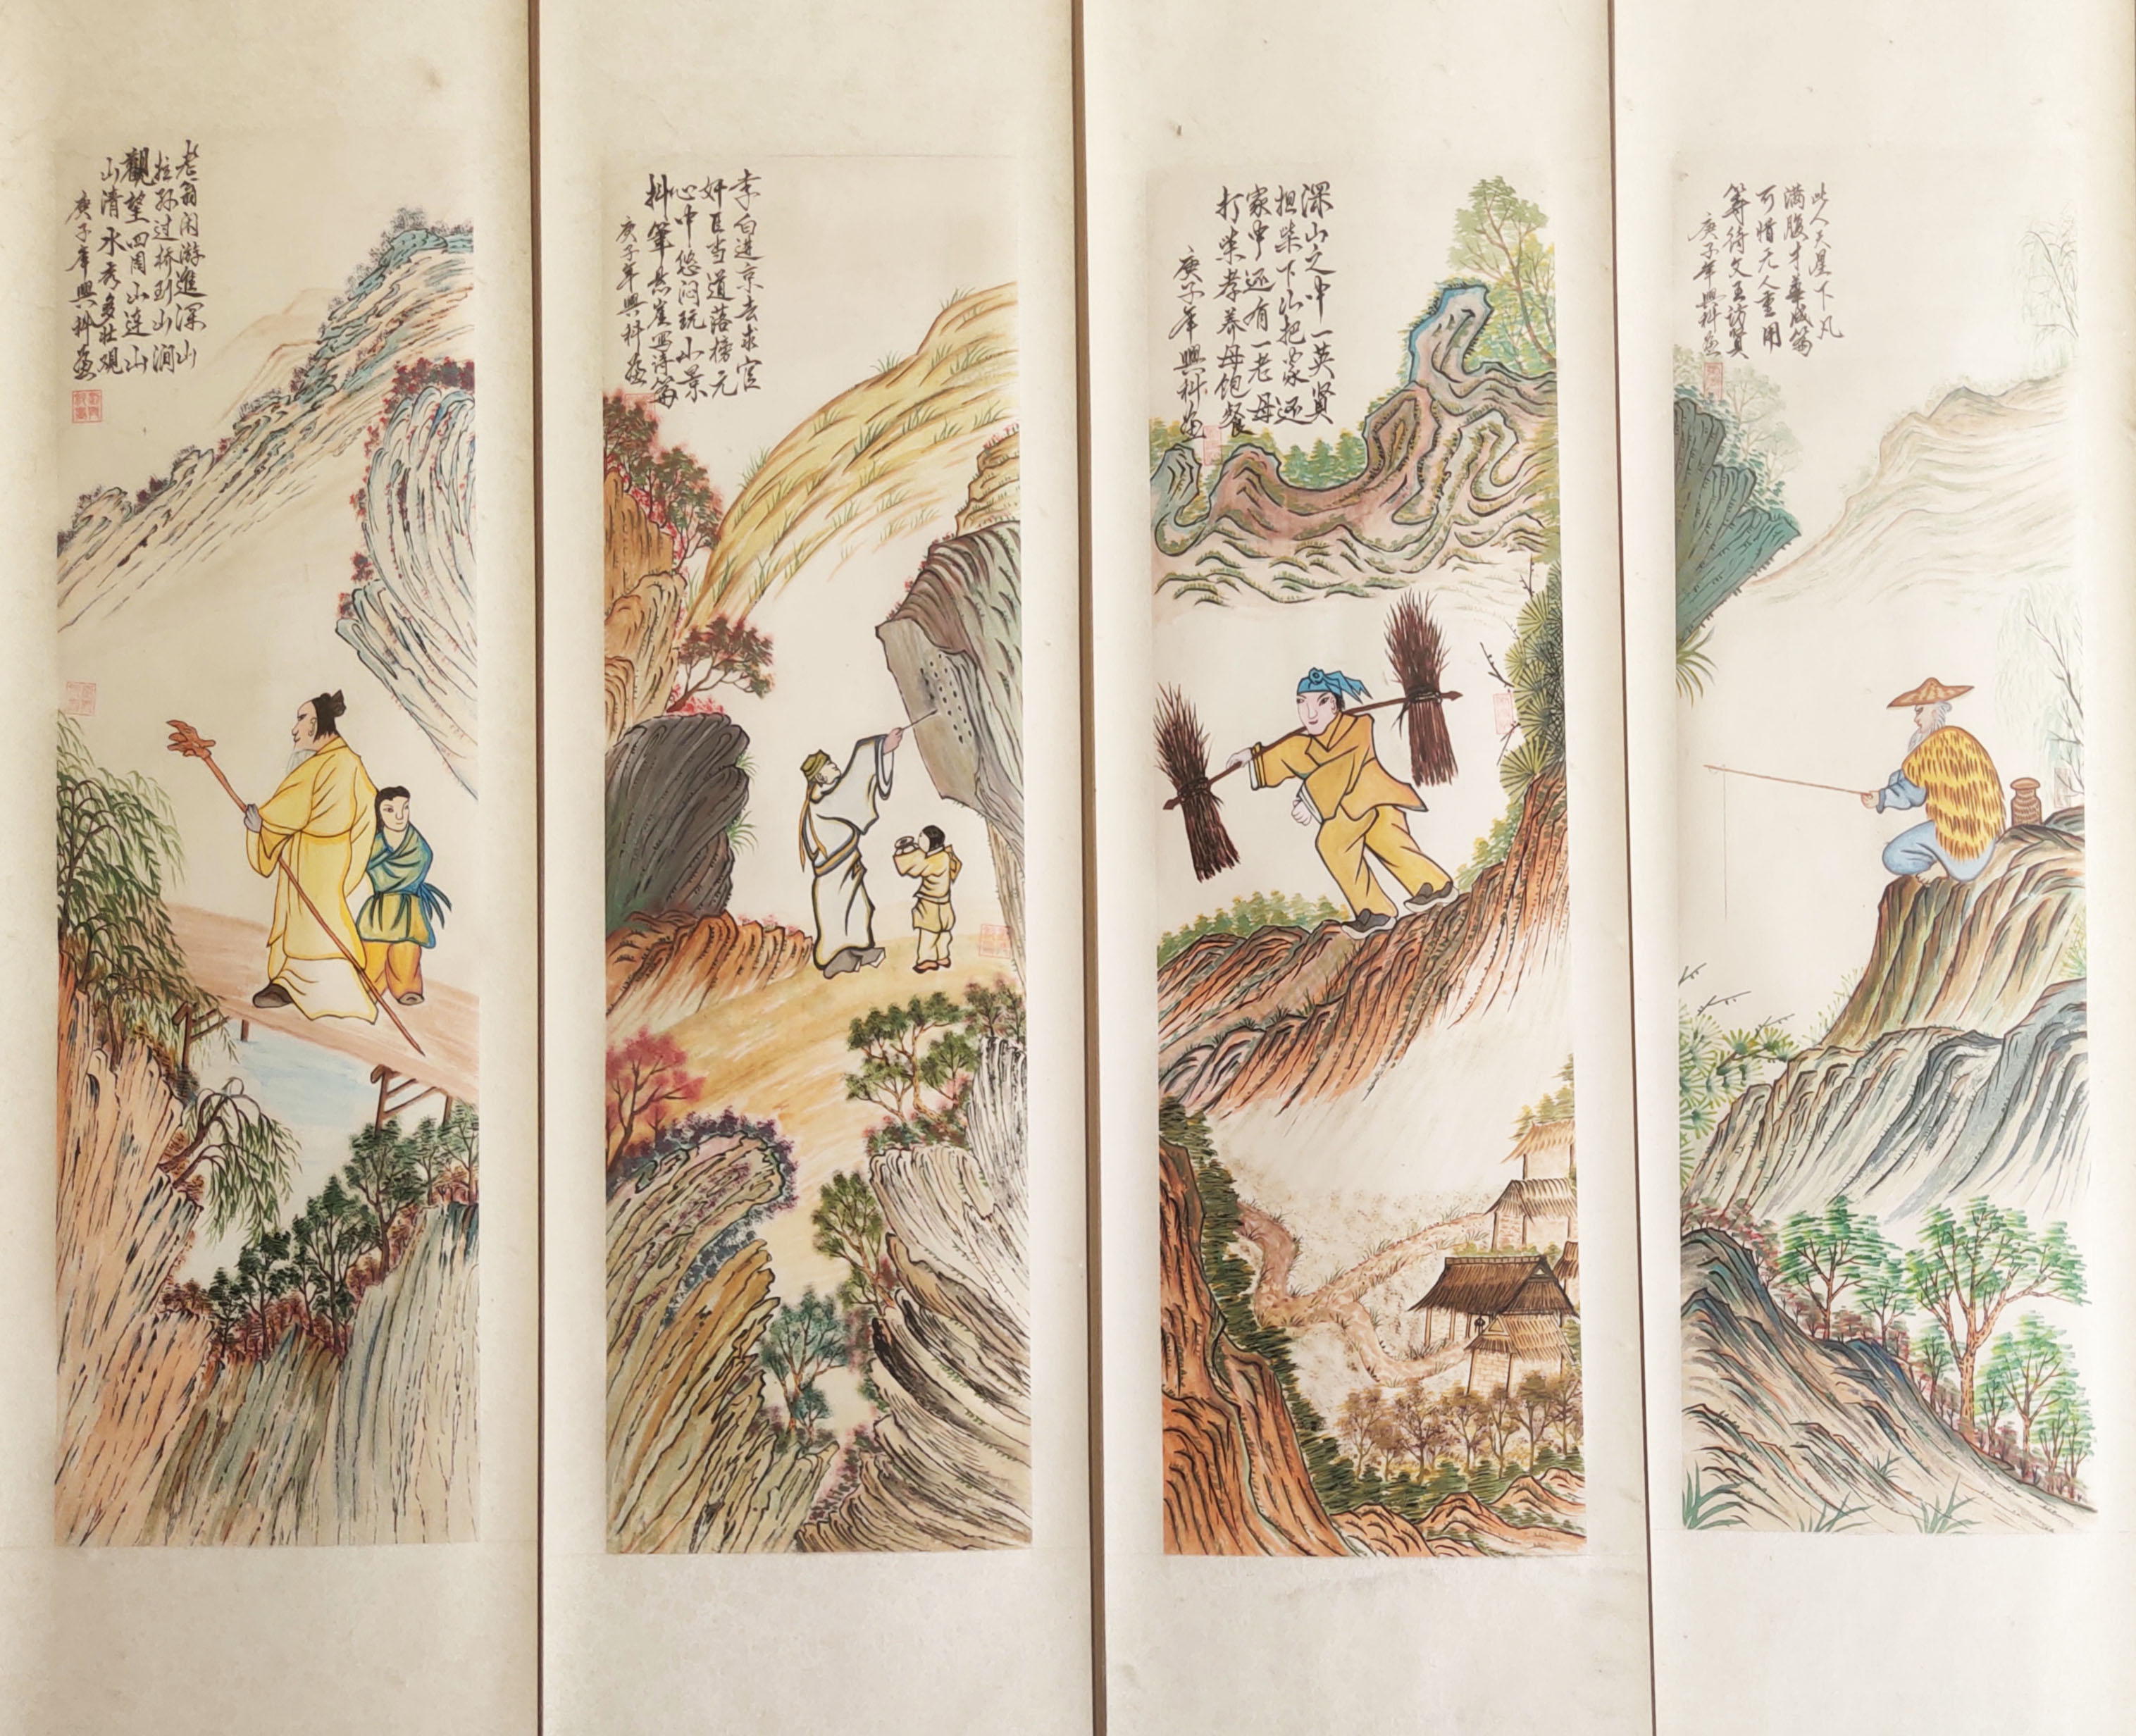 老翁闲游進深山
拉孙过桥到山涧
觀望四周山连山
山清水秀多壮观
庚子年興科画
李白进京去求官
奸臣当道落榜元
心中悠闷玩山景
抖筆悬崖写诗篇
庚子年興科画
深山之中一英贤
担柴下山把家还
家中还有一老母
打柴孝养母饱餐
庚子年興科画
此人天星下凡
满腹才華成篇
可惜无人重用
等待文王访贤
庚子年興科画